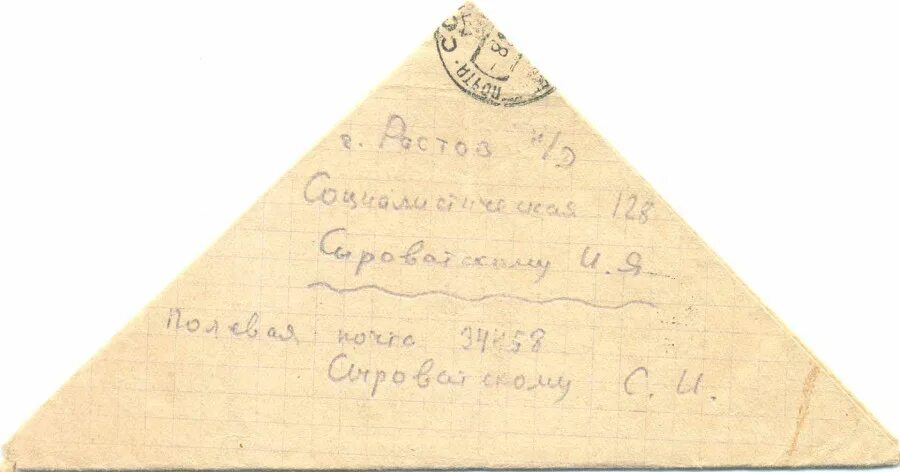 ПОЧТА
г. Ростов н/Д
Социалистическая 128
Сыроватскому И.Я
Полевая почта
Сыроватскому С.И.